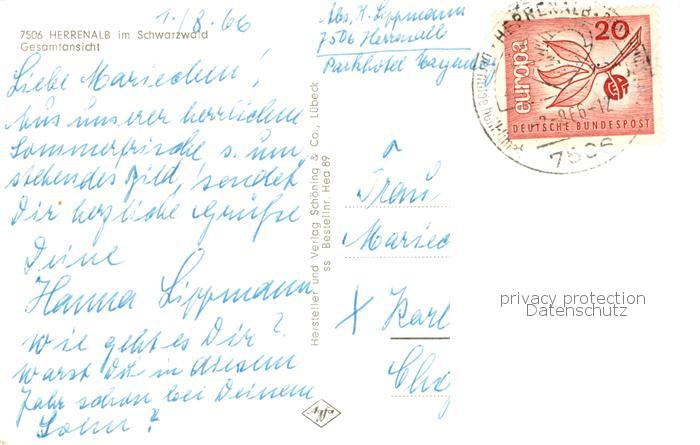 1./8.66
7506 HERRENALB im Schwarzwald
Gesamtansicht
Abs. H. Lippmann
7506 Herrenalb
Parkhotel
Liebe Mariechen!
Aus unserer herrlichen
Sommerfrische s. um-
stehendes Bild, sendet
Dir herzliche Grüße
Deine
Hanna Lippmann
Wie geht es Dir?
Warst Du in diesem
Jahr schon bei Deinem
Sohn?
Hersteller und Verlag Schöning & Co., Lübeck
ss Bestellnr. Hea 89
Frau
Mariec
Karl
HERRENALB
7506
europa
20
DEUTSCHE BUNDESPOST
privacy protection
Datenschutz